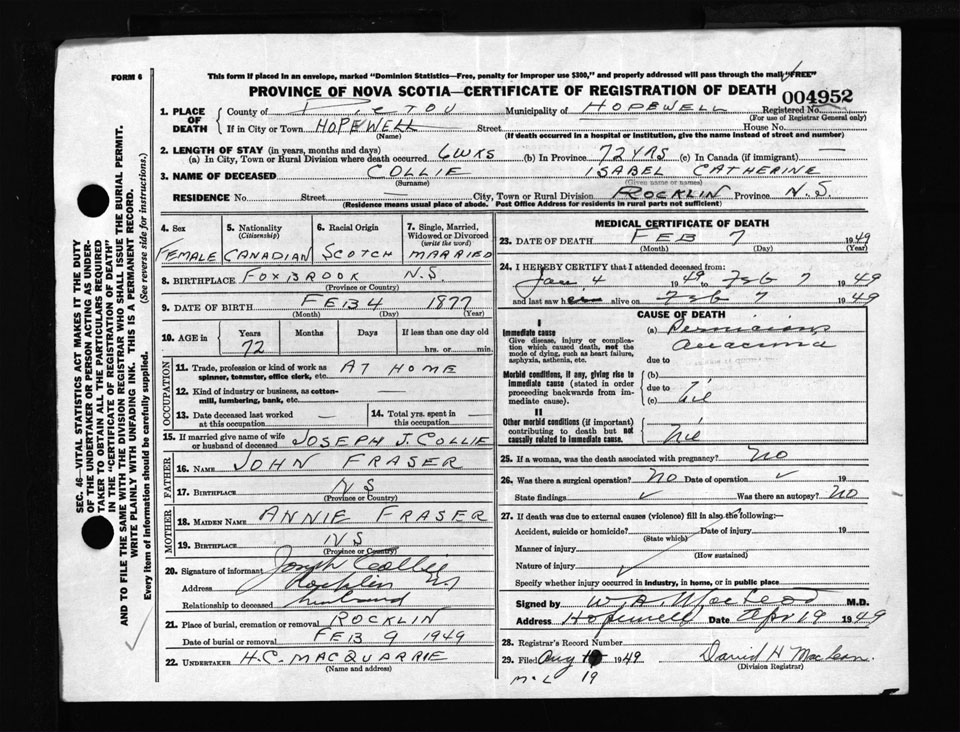 FORM 6
This form if placed in an envelope, marked "Dominion Statistics—Free, penalty for improper use $300," and properly addressed will pass through the mail "FREE"
PROVINCE OF NOVA SCOTIA—CERTIFICATE OF REGISTRATION OF DEATH
004952
1. PLACE OF DEATH County of Pictou Municipality of HOPEWELL Registered No.
(For use of Registrar General only)
If in City or Town HOPEWELL Street House No.
(Name) (If death occurred in a hospital or institution, give the name instead of street and number)
2. LENGTH OF STAY (in years, months and days)
(a) In City, Town or Rural Division where death occurred 6 WKS (b) In Province 72 YRS (c) In Canada (if immigrant) —
3. NAME OF DECEASED COLLIE ISABEL CATHERINE
(Surname) (Given name or names)
RESIDENCE No. Street — City, Town or Rural Division ROCKLIN Province N.S.
(Residence means usual place of abode. Post Office Address for residents in rural parts not sufficient)
SEC. 46—VITAL STATISTICS ACT MAKES IT THE DUTY
OF THE UNDERTAKER OR PERSON ACTING AS UNDER-
TAKER TO OBTAIN ALL THE PARTICULARS REQUIRED
IN THE "CERTIFICATE OF REGISTRATION OF DEATH"
AND TO FILE THE SAME WITH THE DIVISION REGISTRAR WHO SHALL ISSUE THE BURIAL PERMIT.
WRITE PLAINLY WITH UNFADING INK. THIS IS A PERMANENT RECORD.
Every item of information should be carefully supplied. (See reverse side for instructions.)
4. Sex 5. Nationality (Citizenship) 6. Racial Origin 7. Single, Married, Widowed or Divorced (write the word)
FEMALE CANADIAN SCOTCH MARRIED
8. BIRTHPLACE FOXBROOK N.S.
(Province or Country)
9. DATE OF BIRTH FEB 4 1877
(Month) (Day) (Year)
10. AGE in Years Months Days If less than one day old
72 hrs. or min.
OCCUPATION
11. Trade, profession or kind of work as spinner, teamster, office clerk, etc. AT HOME
12. Kind of industry or business, as cotton-mill, lumbering, bank, etc. —
13. Date deceased last worked at this occupation — 14. Total yrs. spent in this occupation —
15. If married give name of wife or husband of deceased JOSEPH J. COLLIE
FATHER
16. NAME JOHN FRASER
17. BIRTHPLACE N S
(Province or Country)
MOTHER
18. MAIDEN NAME ANNIE FRASER
19. BIRTHPLACE N S
(Province or Country)
20. Signature of informant Joseph Collie
Address Rocklin NS
Relationship to deceased husband
21. Place of burial, cremation or removal ROCKLIN
Date of burial or removal FEB 9 1949
22. UNDERTAKER H.C. MACQUARRIE
(Name and address)
MEDICAL CERTIFICATE OF DEATH
23. DATE OF DEATH FEB 7 1949
(Month) (Day) (Year)
24. I HEREBY CERTIFY that I attended deceased from:
Jan 4 1949 to Feb 7 1949
and last saw her alive on Feb 7 1949
CAUSE OF DEATH
I
Immediate cause
Give disease, injury or complication which caused death, not the mode of dying, such as heart failure, asphyxia, asthenia, etc.
(a) Pernicious anaemia
due to
Morbid conditions, if any, giving rise to immediate cause (stated in order proceeding backwards from immediate cause).
(b)
due to
(c) Nil
II
Other morbid conditions (if important) contributing to death but not causally related to immediate cause.
Nil
25. If a woman, was the death associated with pregnancy? NO
26. Was there a surgical operation? NO Date of operation ✓
State findings ✓ Was there an autopsy? NO
27. If death was due to external causes (violence) fill in also the following:—
Accident, suicide or homicide? Date of injury 19
(State which)
Manner of injury
(How sustained)
Nature of injury
Specify whether injury occurred in industry, in home, or in public place
Signed by W. A. MacLeod M.D.
Address Hopewell Date Apr 19 1949
28. Registrar's Record Number
29. Filed Aug 1949 David H MacLean
(Division Registrar)
19